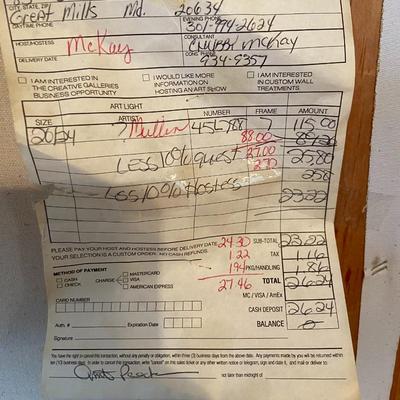 CITY, STATE, ZIP
Great Mills Md. 20634
DAYTIME PHONE EVENING PHONE
301-994-2624
HOST/HOSTESS CONSULTANT
McKay Chubby McKay
DELIVERY DATE CONS. PHONE
934-9357
I AM INTERESTED IN THE CREATIVE GALLERIES BUSINESS OPPORTUNITY
I WOULD LIKE MORE INFORMATION ON HOSTING AN ART SHOW
I AM INTERESTED IN CUSTOM WALL TREATMENTS.
ART LIGHT
SIZE ARTIST NUMBER FRAME AMOUNT
20/24 Mullin 115.00
88.00
LESS 10% guest 27.00 2580
2.70 258
Less 10% Hostess 2322
PLEASE PAY YOUR HOST AND HOSTESS BEFORE DELIVERY DATE
YOUR SELECTION IS A CUSTOM ORDER. NO CASH REFUNDS.
24.30 SUB-TOTAL 23.22
1.22 TAX 1.16
1.94 PKG/HANDLING 1.86
27.46 TOTAL 26.24
METHOD OF PAYMENT
CASH
CHECK
CHARGE
MASTERCARD
VISA
AMERICAN EXPRESS
MC / VISA / AmEx
CARD NUMBER
CASH DEPOSIT 26.24
Auth. # Expiration Date
BALANCE 0
Signature
You have the right to cancel this transaction, without any penalty or obligation, within three (3) business days from the above date. Any payments made by you will be returned within
ten (10) business days. In order to cancel this transaction, write "cancel" on this sales ticket or any other written notice or telegram, sign and date it, and mail or deliver to:
not later than midnight of